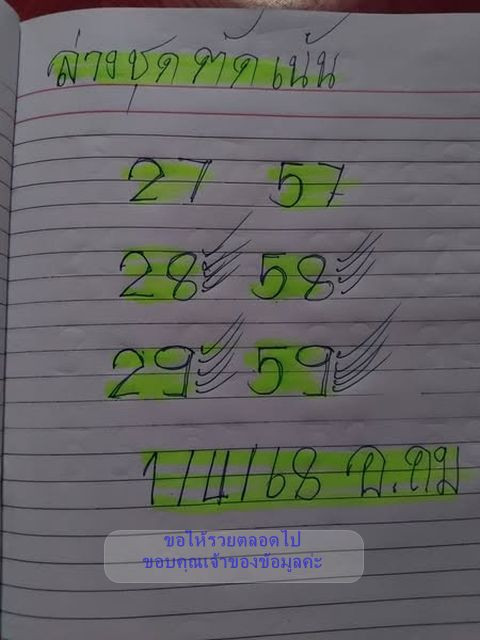 ล่างชุด ตัด เน้น
27 57
28 58
29 59
1/4/68 อ.คม
ขอให้รวยตลอดไป
ขอบคุณเจ้าของข้อมูลค่ะ